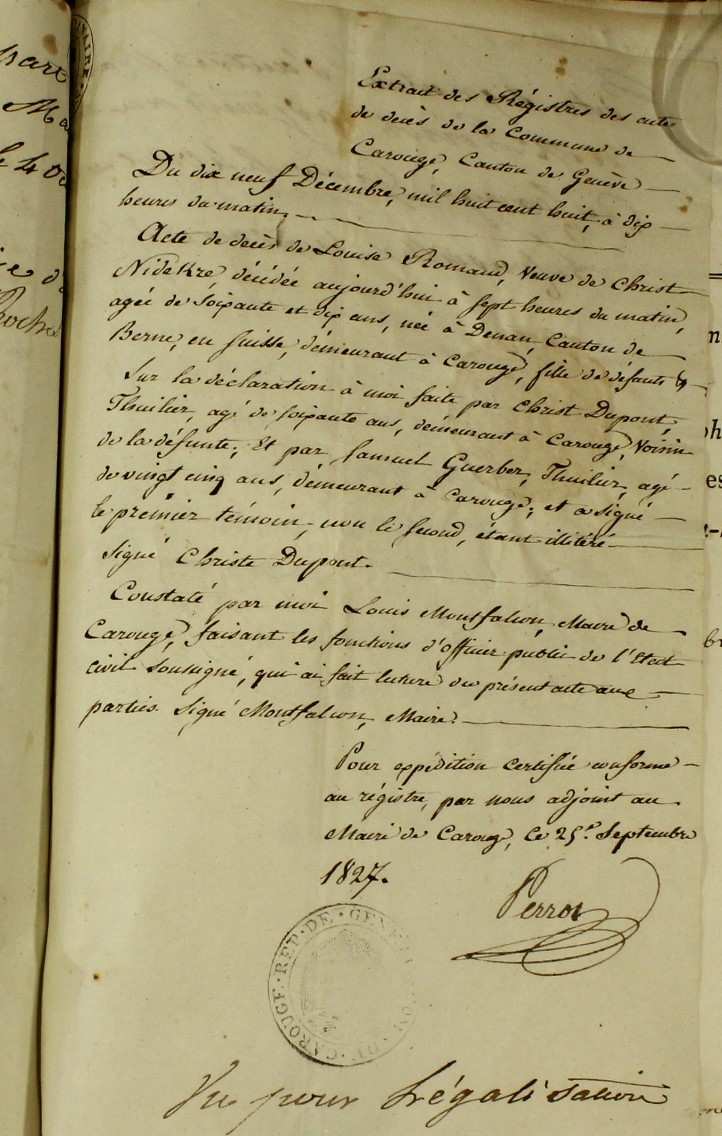 Extrait des Régistres des actes
de decès de la Commune de
Carouge, Canton de Genève
Du dix neuf Décembre, mil huit cent huit, à dix
heures du matin.
Acte de decès de Louise Romand, Veuve de Christ
Nidekre, décédée aujourd'hui à sept heures du matin,
agée de soixante et dix ans, née à Denan, Canton de
Berne, en Suisse, demeurant à Carouge, fille de défunts
Sur la déclaration à moi faite par Christ Dupont,
Thuilier, agé de soixante ans, demeurant à Carouge, Voisin
de la défunte; Et par Samuel Guerber, Thuilier, agé
de vingt cinq ans, demeurant à Carouge; et a signé
le premier témoin, non le second, étant illitéré
signé Christe Dupont.
Constaté par moi Louis Montfalcon, Maire de
Carouge, faisant les fonctions d'officier public de l'Etat
civil soussigné, qui ai fait lecture du présent acte aux
parties. Signé Montfalcon, Maire.
Pour expédition certifiée conforme
au régistre, par nous adjoint au
Maire de Carouge, ce 25e Septembre
1827.
Perrot
CAROUGE. REP. DE. GENE
Vu pour Légalisation
parx
Ma
Roche